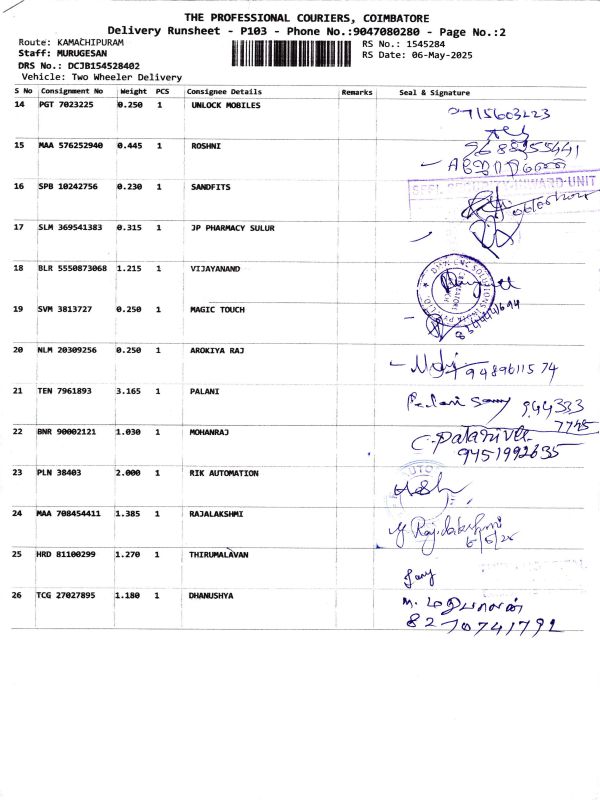 THE PROFESSIONAL COURIERS, COIMBATORE
Delivery Runsheet - P103 - Phone No.:9047080280 - Page No.:2
Route: KAMACHIPURAM RS No.: 1545284
Staff: MURUGESAN RS Date: 06-May-2025
DRS No.: DCJB154528402
Vehicle: Two Wheeler Delivery
S No Consignment No Weight PCS Consignee Details Remarks Seal & Signature
14 PGT 7023225 0.250 1 UNLOCK MOBILES
15 MAA 576252940 0.445 1 ROSHNI
16 SPB 10242756 0.230 1 SANDFITS
17 SLM 369541383 0.315 1 JP PHARMACY SULUR
18 BLR 5550873068 1.215 1 VIJAYANAND
19 SVM 3813727 0.250 1 MAGIC TOUCH
20 NLM 20309256 0.250 1 AROKIYA RAJ
9489611574
21 TEN 7961893 3.165 1 PALANI
Palani Samy 944333
7745
22 BNR 90002121 1.030 1 MOHANRAJ
C. Palanivel
9751992635
23 PLN 38403 2.000 1 RIK AUTOMATION
24 MAA 708454411 1.385 1 RAJALAKSHMI
Rajalakshmi
6/5/25
25 HRD 81100299 1.270 1 THIRUMALAVAN
26 TCG 27027895 1.180 1 DHANUSHYA
8270741792